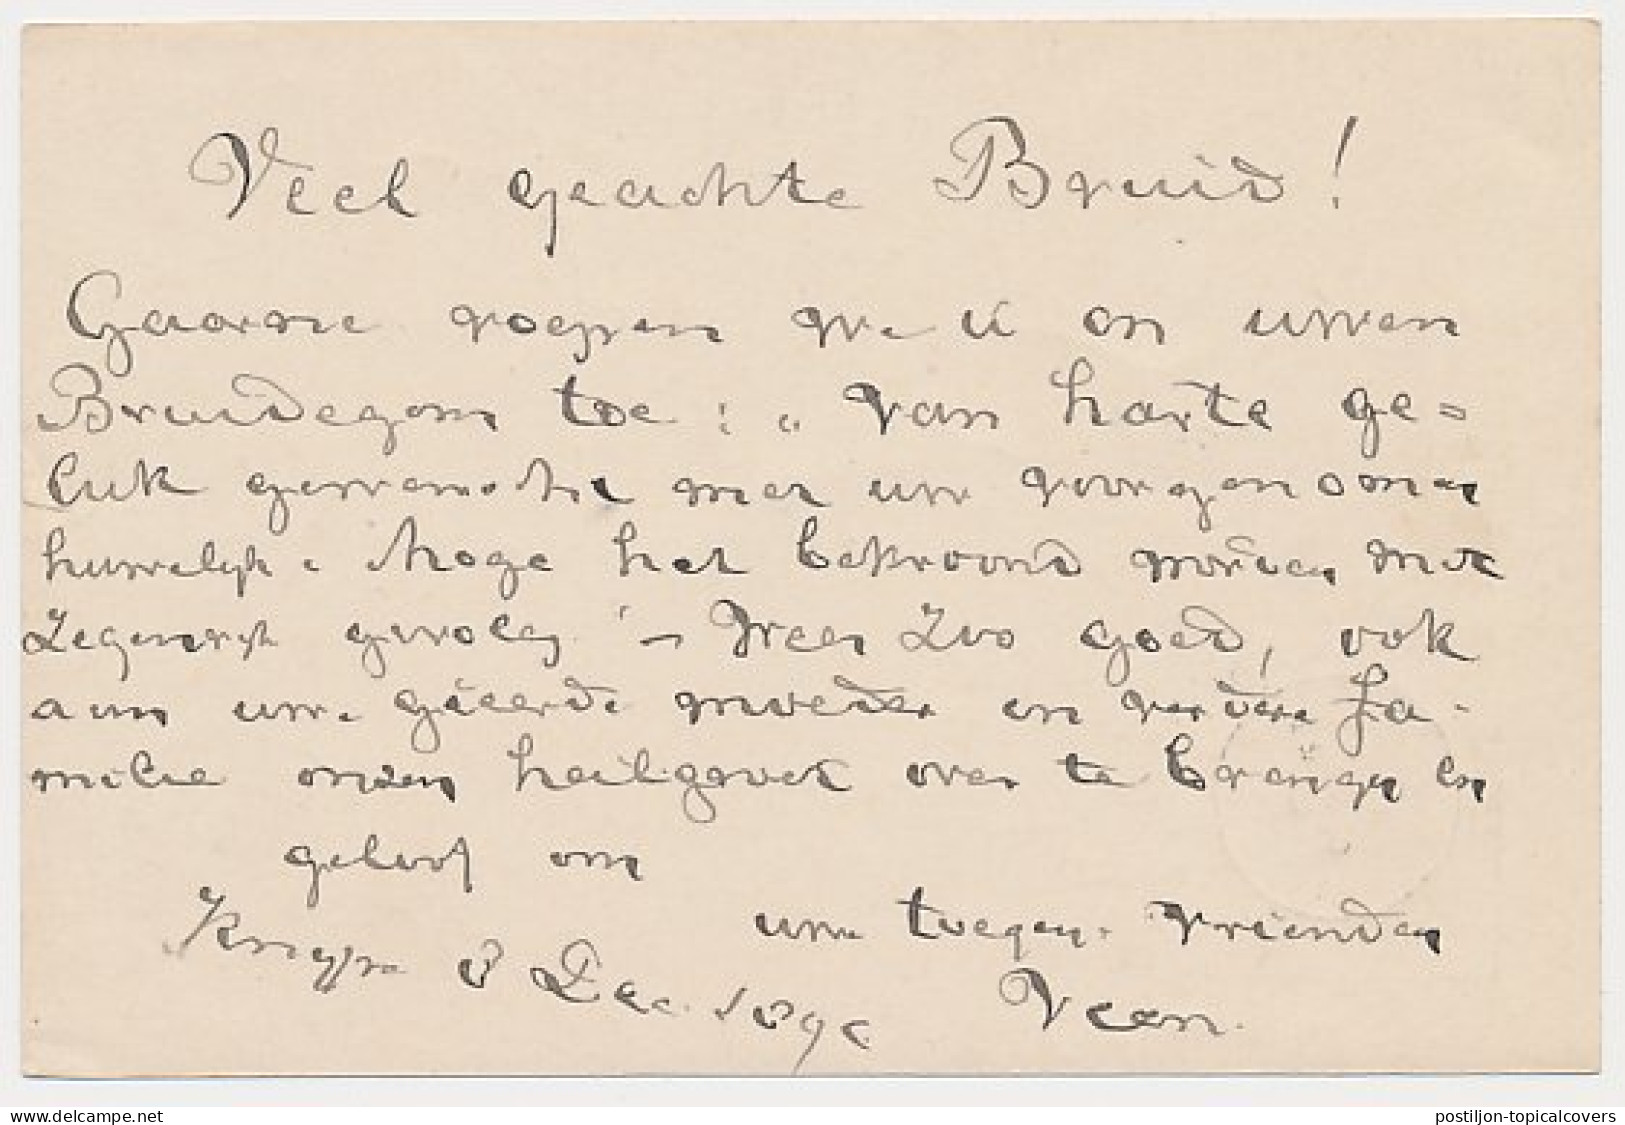 Veel geachte Bruid!
Gaarne roepen we U en uwen
Bruidegom toe: „ van harte ge=
luk gewenscht met uw voorgenomen
huwelijk. Moge het bekroond worden met
Zegenrijk gevolg!" - Wees Zoo goed, ook
aan uwe geëerde moeder en verdere fa-
milie onzen heilgroet over te brengen en
geloof ons
uw toegen. Vrienden
Knijpe 8 Dec. 189
Veen.
delcampe.net
postiljon-topicalcovers